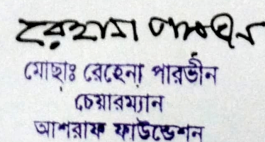 রেহানা পারভীন
মোছাঃ রেহেনা পারভীন
চেয়ারম্যান
আশরাফ ফাউন্ডেশন